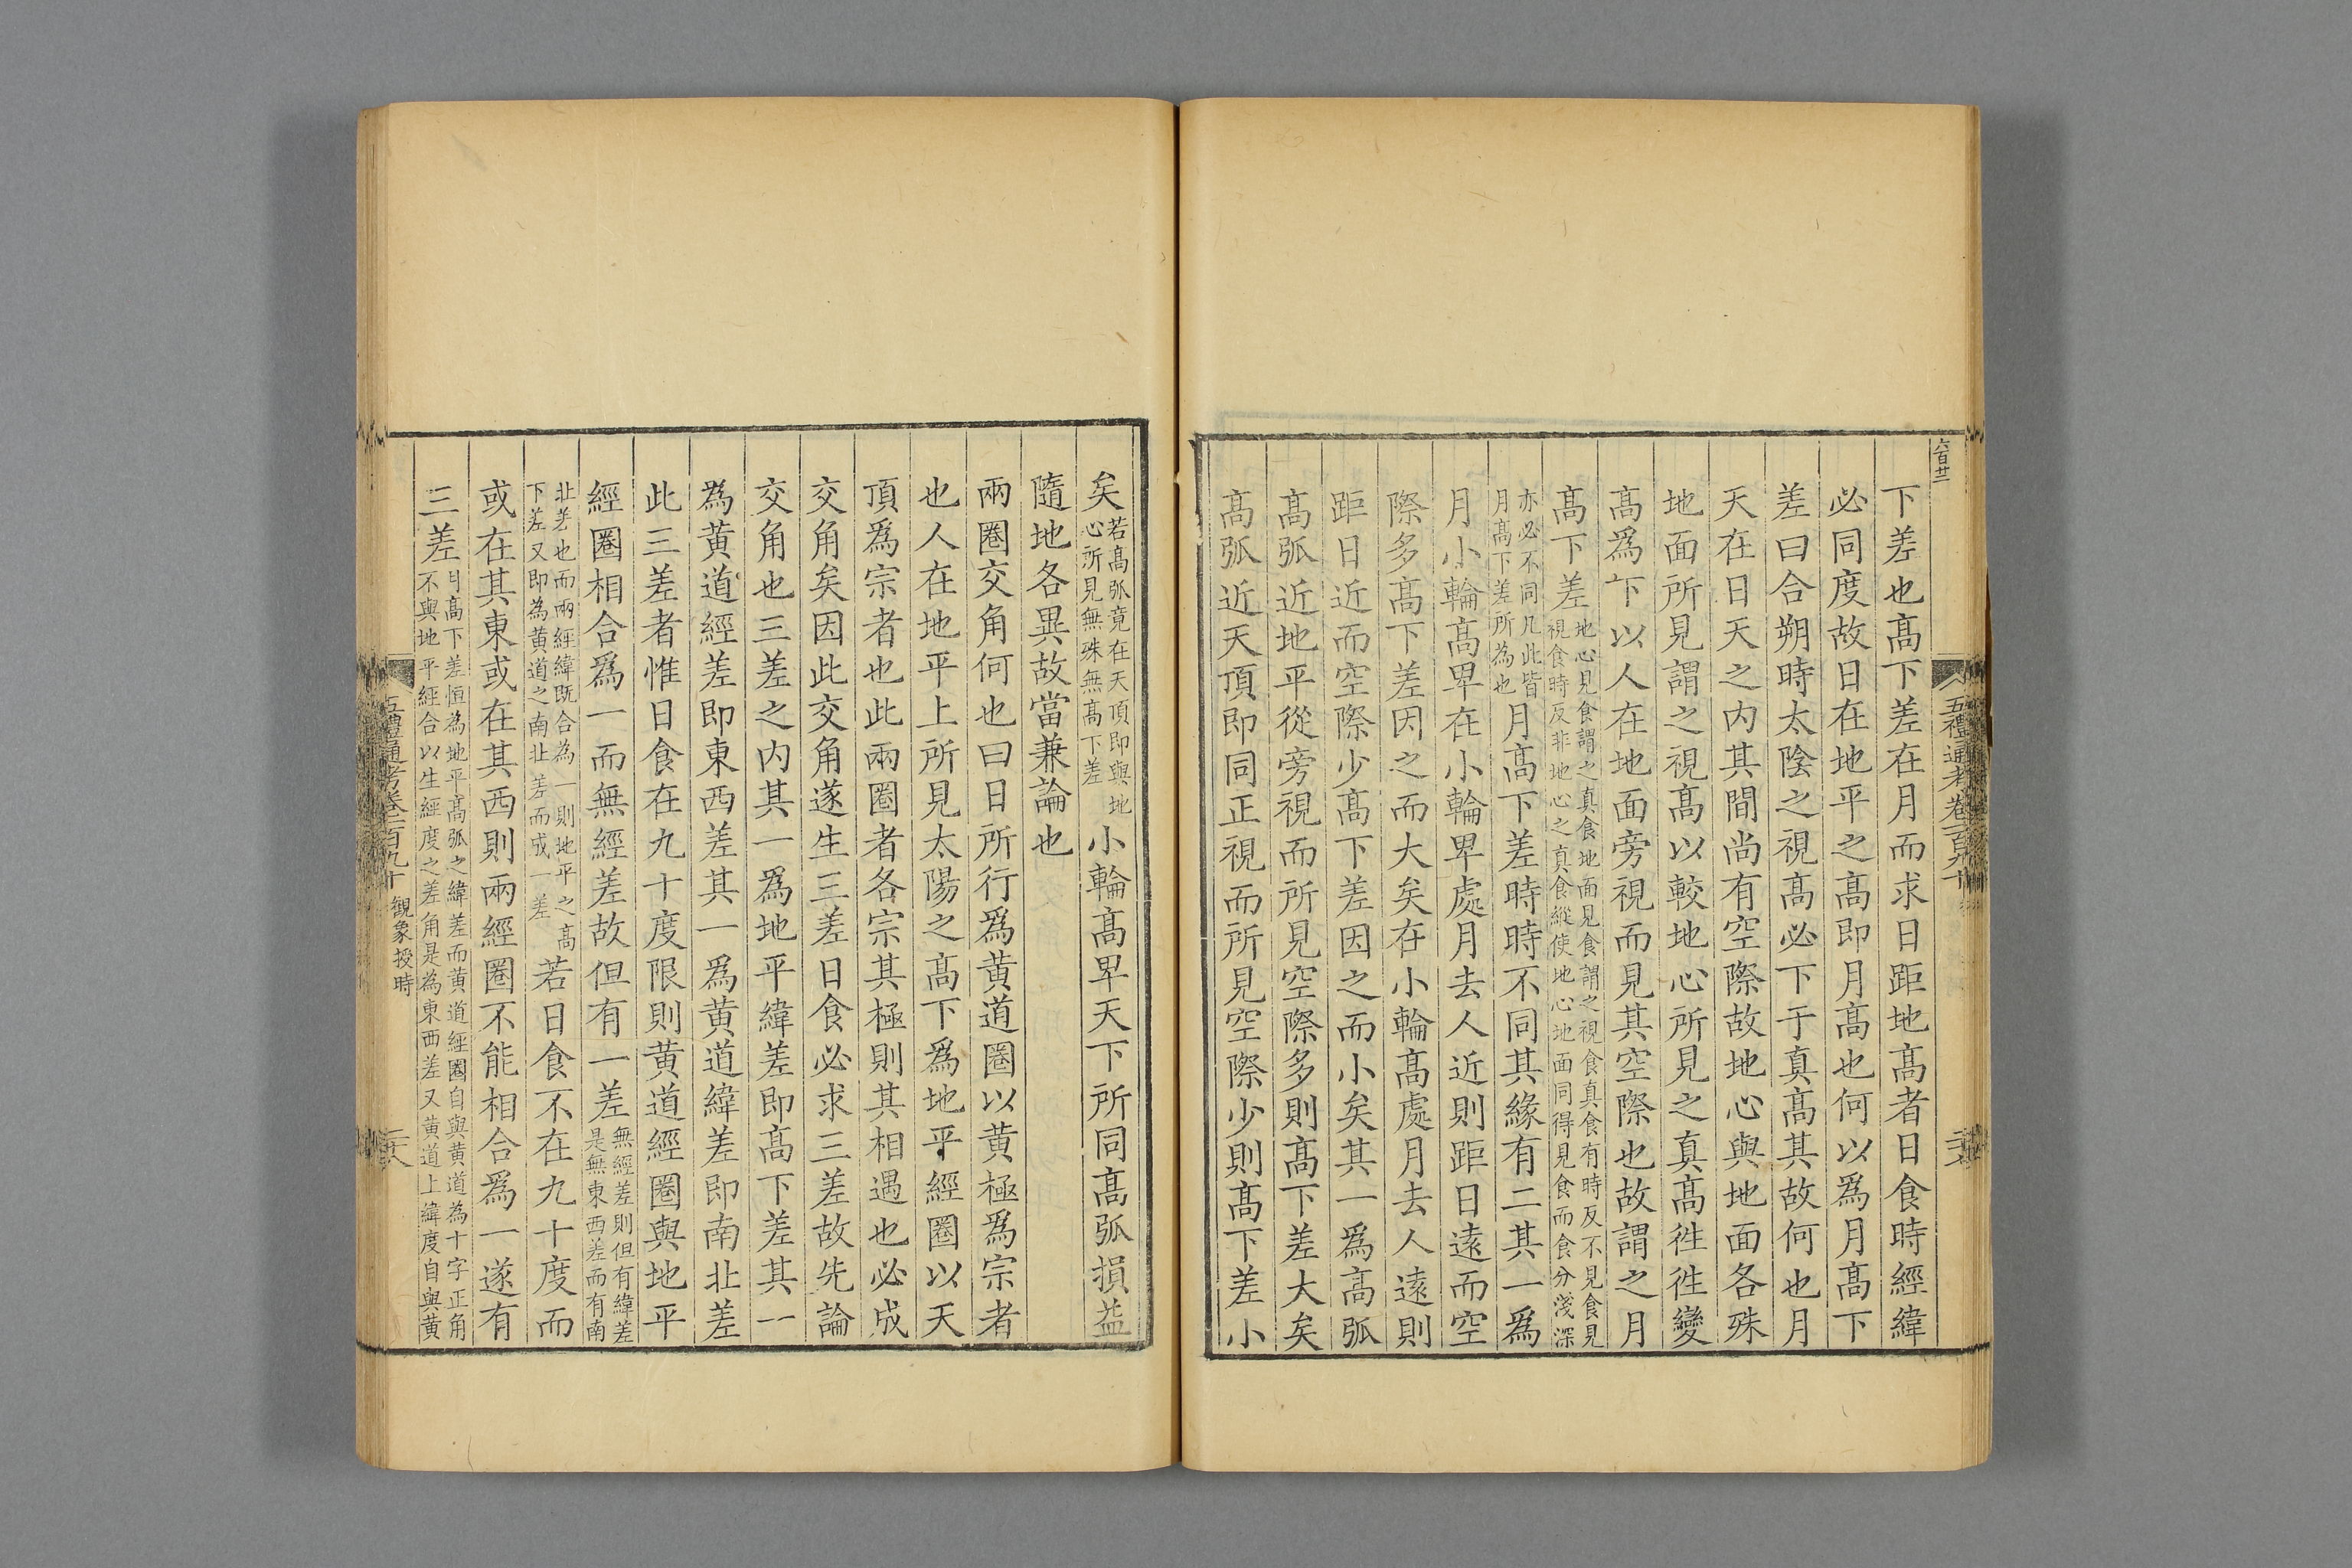 六百廿二
五禮通考卷一百九十
下差也髙下差在月而求日距地髙者日食時經緯
必同度故日在地平之髙即月髙也何以爲月髙下
差曰合朔時太陰之視髙必下于真髙其故何也月
天在日天之内其間尚有空際故地心與地面各殊
地面所見謂之視髙以較地心所見之真髙徃徃變
髙爲下以人在地面旁視而見其空際也故謂之月
髙下差地心見食謂之真食地面見食謂之視食真食有時反不見食見
視食時反非地心之真食縱使地心地面同得見食而食分淺深
亦必不同凡此皆
月髙下差所為也月髙下差時時不同其緣有二其一爲
月小輪髙卑在小輪卑處月去人近則距日逺而空
際多髙下差因之而大矣在小輪髙處月去人逺則
距日近而空際少髙下差因之而小矣其一爲髙弧
髙弧近地平從旁視而所見空際多則髙下差大矣
髙弧近天頂即同正視而所見空際少則髙下差小
矣若髙弧竟在天頂即與地
心所見無殊無髙下差小輪髙卑天下所同髙弧損益
隨地各異故當兼論也
兩圈交角何也曰日所行爲黄道圈以黄極爲宗者
也人在地平上所見太陽之髙下爲地平經圈以天
頂爲宗者也此兩圈者各宗其極則其相遇也必成
交角矣因此交角遂生三差日食必求三差故先論
交角也三差之内其一爲地平緯差即髙下差其一
為黄道經差即東西差其一爲黄道緯差即南北差
此三差者惟日食在九十度限則黄道經圈與地平
經圈相合爲一而無經差故但有一差無經差則但有緯差
是無東西差而有南
北差也而兩經緯既合為一則地平之髙
下差又即為黄道之南北差而成一差若日食不在九十度而
或在其東或在其西則兩經圈不能相合爲一遂有
三差月髙下差恒為地平髙弧之緯差而黄道經圈自與黄道為十字正角
不與地平經合以生經度之差角是為東西差又黄道上緯度自與黄
五禮通考卷一百九十 觀象授時
二十八